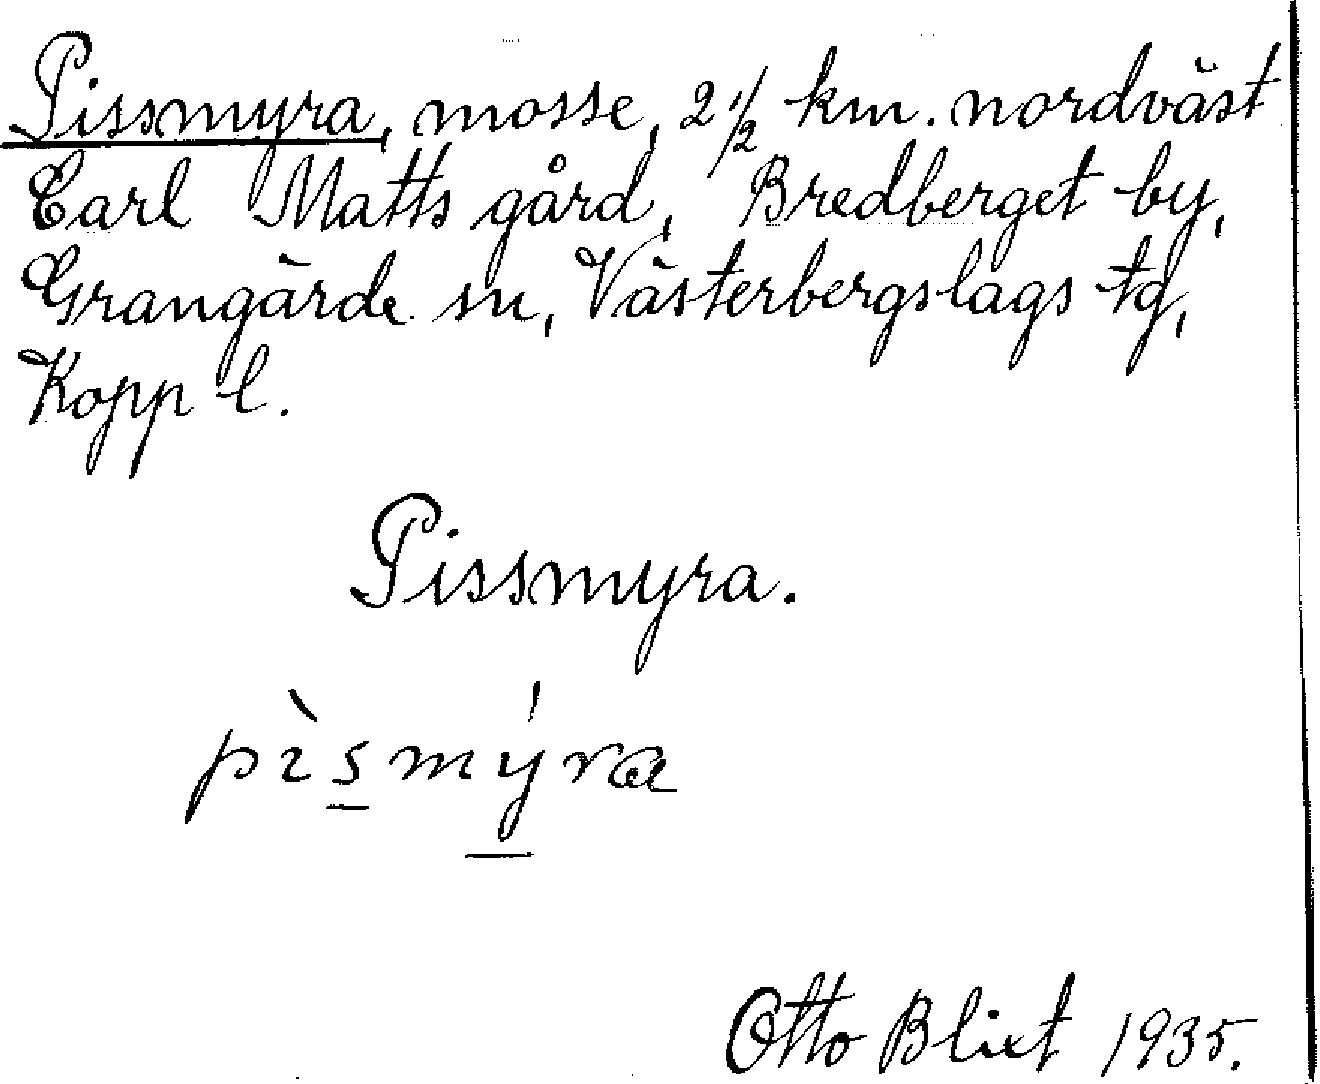 Pissmyra, mosse, 2 1/2 km. nordväst
Carl Matts gård, Bredberget by,
Grangärde sn, Västerbergslags tg,
Kopp l.
Pissmyra.
pìsmýra
Otto Blixt 1935.